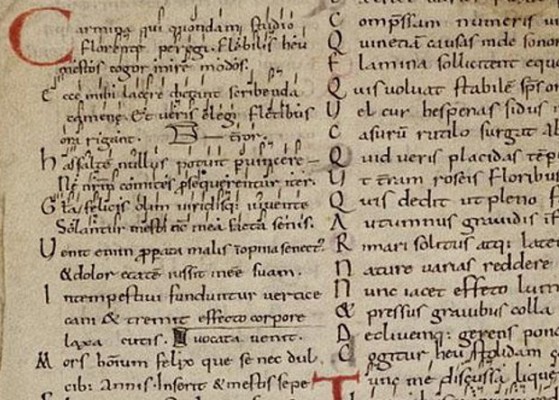 Carmina qui quondam studio
florente peregi. Flebilis heu
mestos cogor inire modos.
Ecce mihi lacere dictant scribenda
camene. Et veris elegi fletibus
ora rigant.
has saltē nullus potuit puincere
Ne nrm̄ comites psequerentur iter.
Gl̄a felicis olim viridisq; iuvente
Solantur mesti nc̄ mea facta senis.
Venit enim ppata malis inopina senect'
& dolor etatē iussit inee suam.
Intempestivi funduntur vertice
cani & tremit effecto corpore
laxa cutis. vocata venit.
Mors hominum felix que se nec dul
cib; Annis. Inserit & mestis sepe
Comp̄ssam numeris
Quinetiā causas unde sonor
Flamina sollicitent equo
Quis voluat stabilē
Uel cur hesperas sidus
Casurū rutilo surgat
Quid veris placidas tēp
Ut t̄ram roseis floribus
Quis dedit ut pleno
Autumnus gravidis
Rimari solitus atq; late
Nature varias reddere
Nunc iacet effeto lum
& pressus gravibus colla
Decliuemq; gerens pond
Cogitur heu stolidam
Tunc me discussa lique